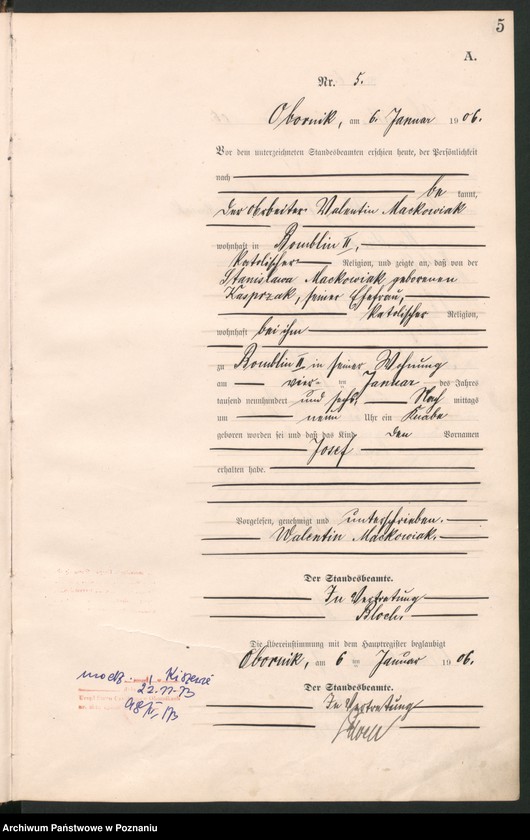 5
A.
Nr. 5.
Obornik, am 6. Januar 1906.
Vor dem unterzeichneten Standesbeamten erschien heute, der Persönlichkeit
nach
be kannt,
der Arbeiter Valentin Mackowiak
wohnhaft in Bomblin II,
katolischer Religion, und zeigte an, daß von der
Stanislawa Mackowiak geborenen
Kasprzak, seiner Ehefrau,
katolischer Religion,
wohnhaft bei ihm
zu Bomblin II in seiner Wohnung
am vier ten Januar des Jahres
tausend neunhundert und sechs, Nach mittags
um neun Uhr ein Knabe
geboren worden sei und daß das Kind den Vornamen
Josef
erhalten habe.
Vorgelesen, genehmigt und unterschrieben.
Valentin Mackowiak.
Der Standesbeamte.
In Vertretung
Bloch.
Die Übereinstimmung mit dem Hauptregister beglaubigt
Obornik, am 6 ten Januar 1906.
Der Standesbeamte.
In Vertretung
Bloch
22.11.73
Archiwum Państwowe w Poznaniu